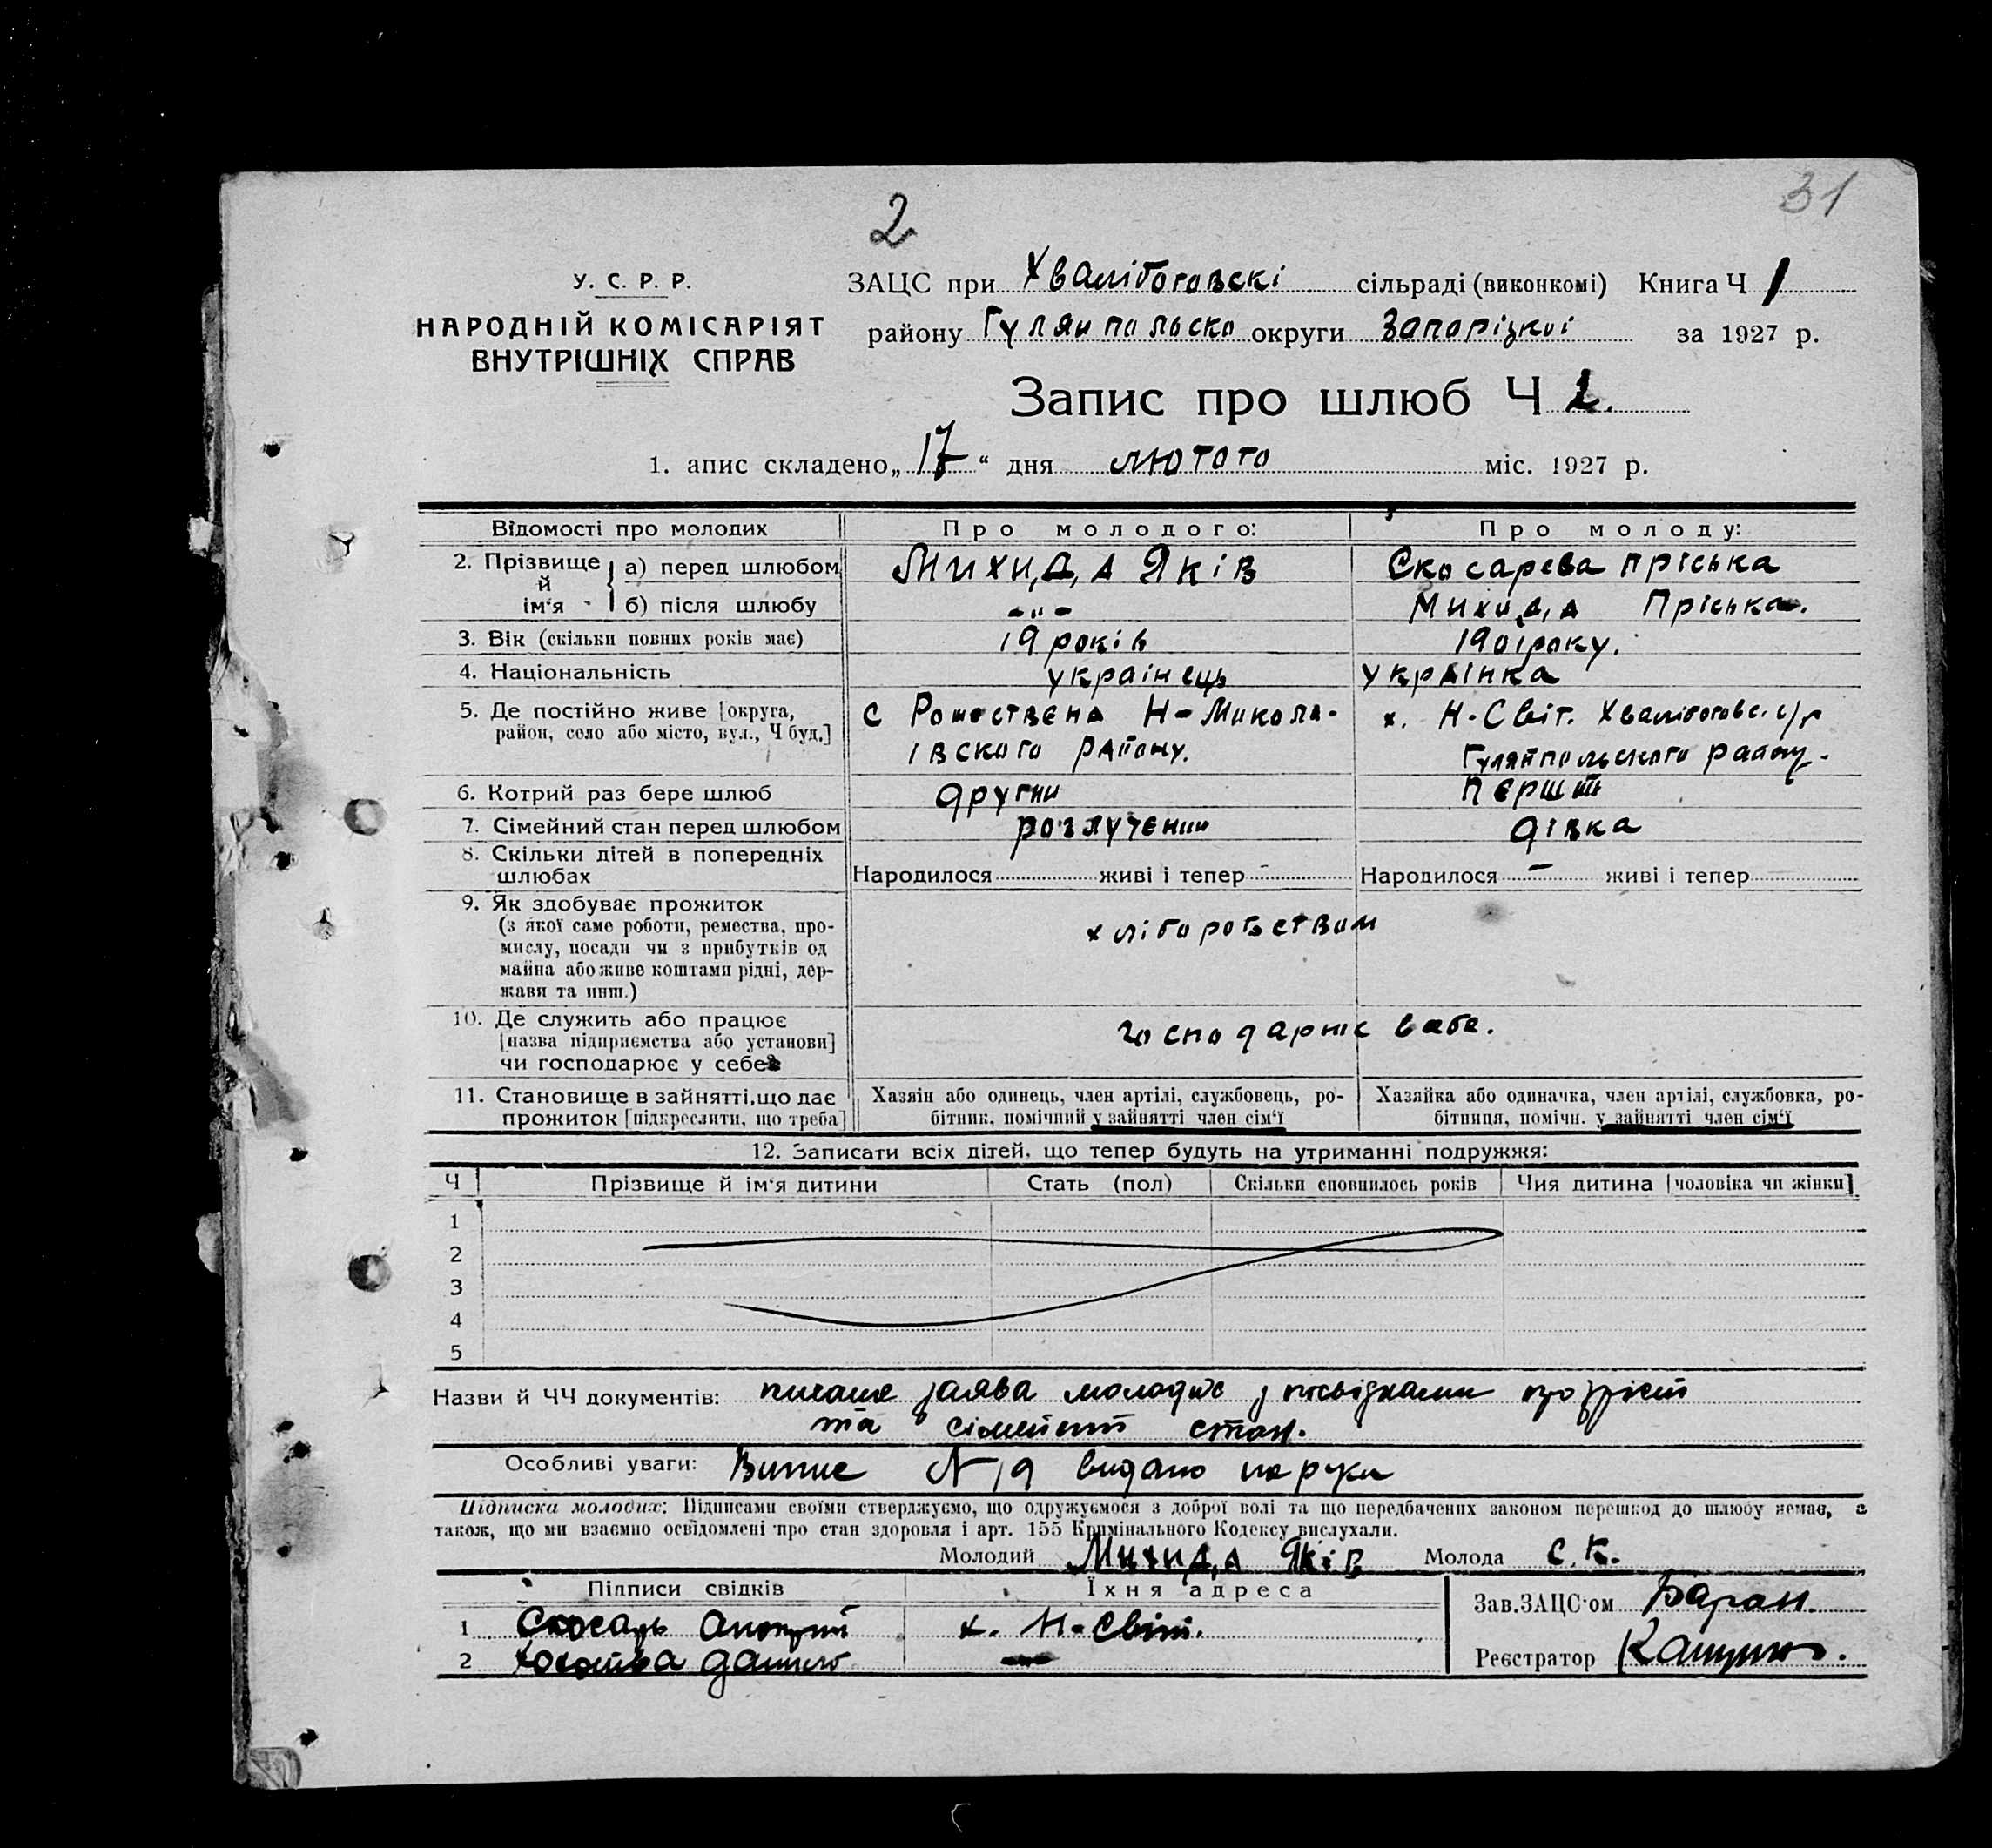 31
2
У. С. Р. Р.
НАРОДНІЙ КОМІСАРІЯТ
ВНУТРІШНІХ СПРАВ
ЗАЦС при Хвалібоговскі сільраді (виконкомі) Книга Ч 1
району Гуляйпольско округи Запорізкої за 1927 р.
Запис про шлюб Ч 2.
1. апис складено „17“ дня лютого міс. 1927 р.
Відомості про молодих Про молодого: Про молоду:
2. Прізвище й ім‘я
а) перед шлюбом Михида Яків Скосарєва Пріська
б) після шлюбу -„- Михида Пріська.
3. Вік (скільки повних років має) 19 років 1901 року.
4. Національність українець українка
5. Де постійно живе [округа, район, село або місто, вул., Ч буд.]
с Рожествена Н-Микола-
івского району.
х. Н-Світ. Хвалібоговс. с/р
Гуляйпольского району.
6. Котрий раз бере шлюб другий першій
7. Сімейний стан перед шлюбом розлучений дівка
8. Скільки дітей в попередніх шлюбах
Народилося живі і тепер - Народилося - живі і тепер
9. Як здобуває прожиток
(з якої само роботи, ремества, про-
мислу, посади чи з прибутків од
майна або живе коштами рідні, дер-
жави та инш.)
хліборобством
10. Де служить або працює
[назва підприємства або установи]
чи господарює у себе
господарює в себе.
11. Становище в зайнятті, що дає
прожиток [підкреслити, що треба]
Хазяін або одинець, член артілі, службовець, ро-
бітник, помічний у зайнятті член сім‘ї
Хазяйка або одиначка, член артілі, службовка, ро-
бітниця, помічн. у зайнятті член сім‘ї
12. Записати всіх дітей, що тепер будуть на утриманні подружжя:
Ч Прізвище й ім‘я дитини Стать (пол) Скільки сповнилось років Чия дитина [чоловіка чи жінки]
1
2
3
4
5
Назви й ЧЧ документів: заява молодих з посвідками
та сімейний стан.
Особливі уваги: Випис № 19 видано на руки
Підписка молодих: Підписами своїми стверджуємо, що одружуємося з доброї волі та що передбачених законом перешкод до шлюбу немає, а
також, що ми взаємно освідомлені про стан здоровля і арт. 155 Кримінального Кодексу вислухали.
Молодий Михида Яків Молода С. К.
Підписи свідків Їхня адреса
1 Скосарь х. Н-Світ.
2 Данило
Зав. ЗАЦС-ом Баран.
Реєстратор